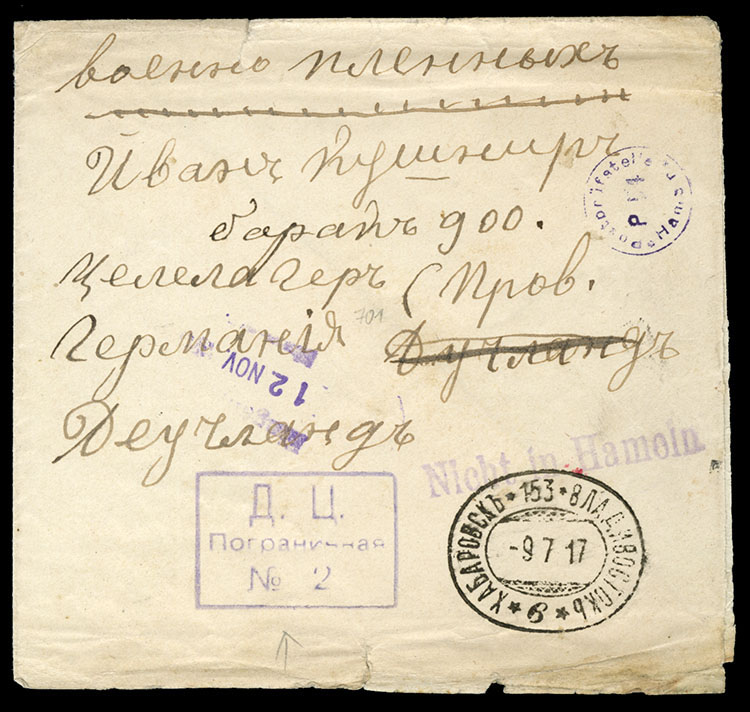 военно пленныхъ
Иванъ Кушниръ
баракъ 900.
Postprüfstelle zu Hameln
P 14
Целелагеръ (Пров.
701
Германія Дучландъ
12 NOV
Деучландъ
Nicht in Hameln
Д. Ц.
Пограничная
№ 2
ХАБАРОВСКЪ * 153 * ВЛАДИВОСТОКЪ
-9 7 17
* б *